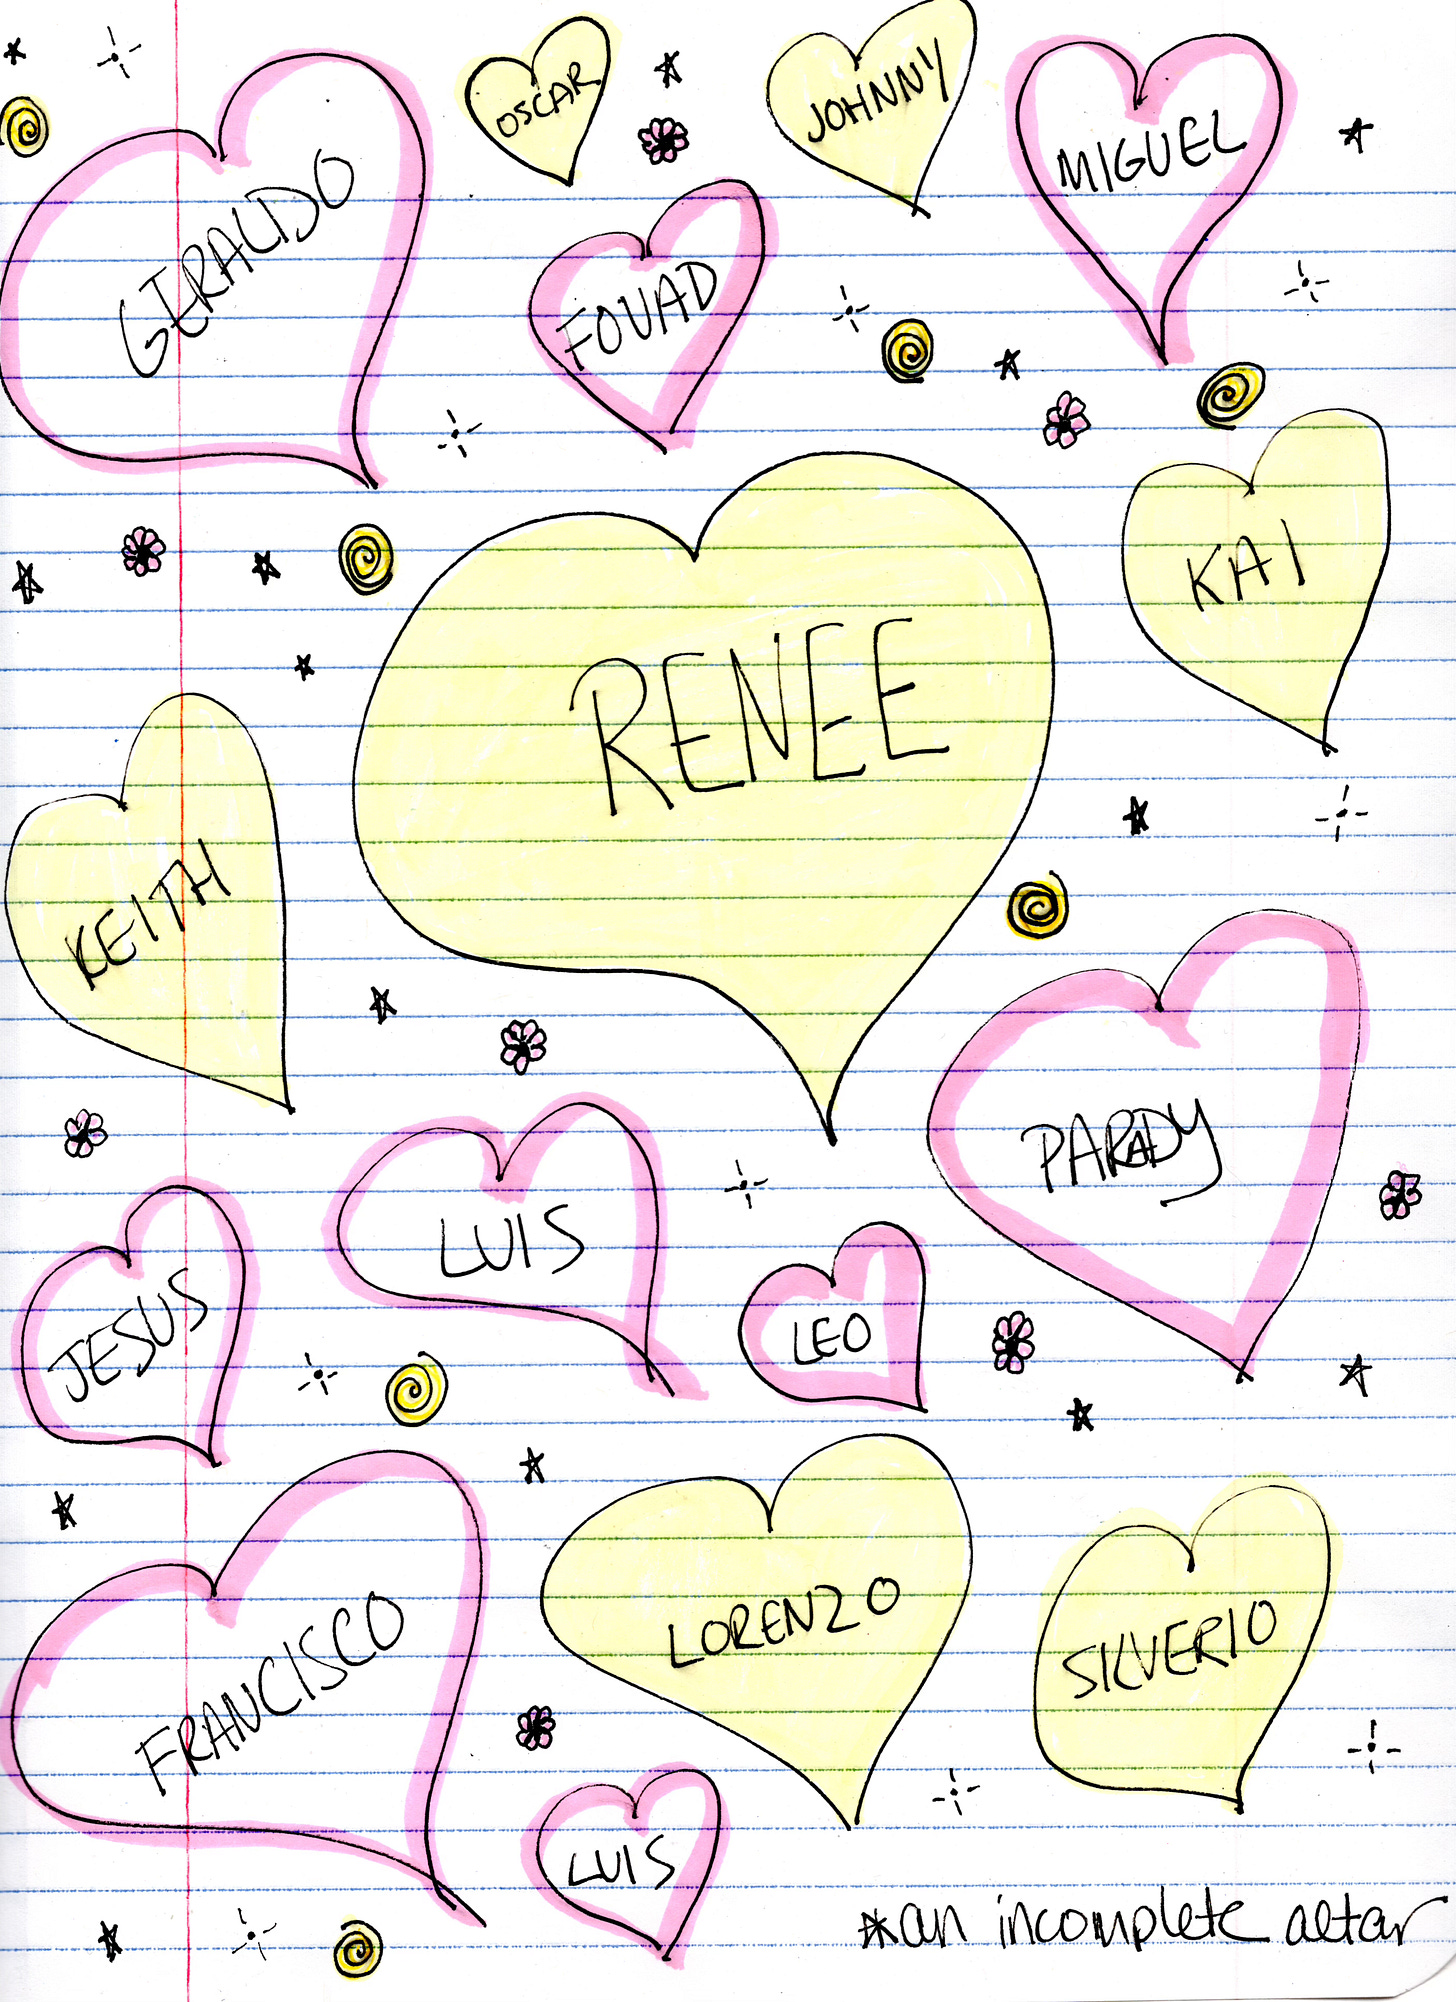 OSCAR
JOHNNY
MIGUEL
GERALDO
FOUAD
KAI
RENEE
KEITH
PARADY
LUIS
JESUS
LEO
FRANCISCO
LORENZO
SILVERIO
LUIS
*an incomplete altar